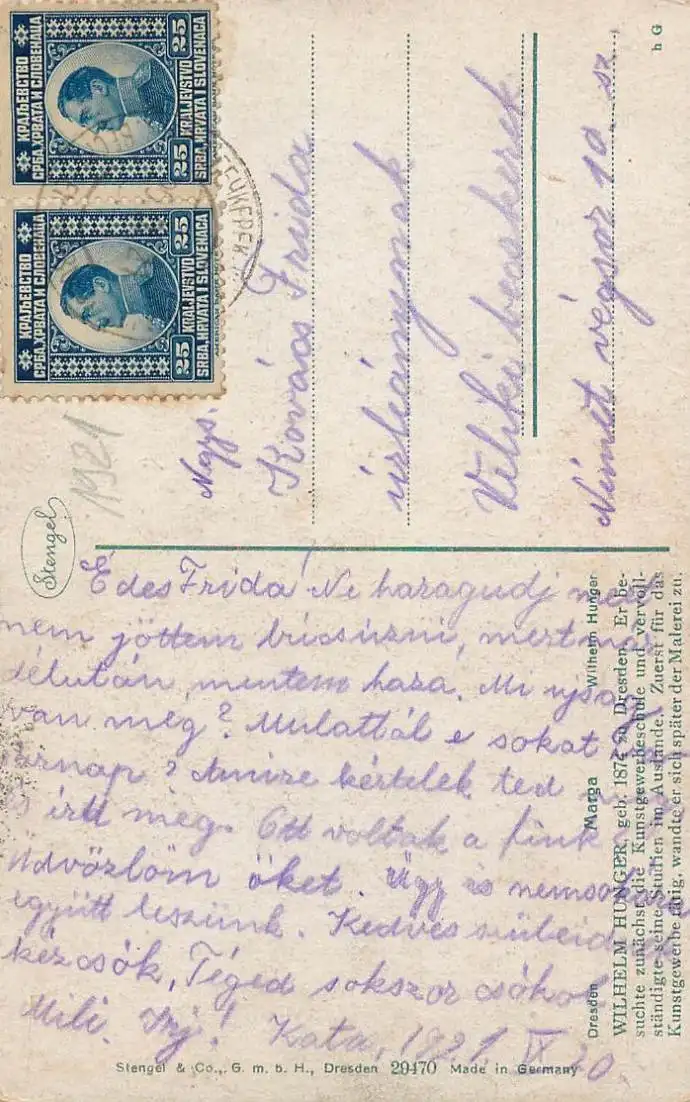 КРАЉЕВСТВО
СРБА, ХРВАТА И СЛОВЕНАЦА
25 25
KRALJEVSTVO
SRBA, HRVATA I SLOVENACA
КРАЉЕВСТВО
СРБА, ХРВАТА И СЛОВЕНАЦА
25 25
KRALJEVSTVO
SRBA, HRVATA I SLOVENACA
1921
Stengel
Nagys.
Kovács Frida
úrleánynak
Veliki becskerek
Német végsor 10. sz.
h G
Édes Frida! Ne haragudj
nem jöttem búcsúzni, mert
délután mentem haza. Mi
van még? Mulattál e sokat
Amire kértelek ted
írd meg. Ott voltak a
üdvözlöm őket. Úgy is
együtt leszünk. Kedves szüleid
kézcsók, Téged sokszor csókol
Mili. Írj! Kata, 1921. IX 20.
Dresden Marga Wilhelm Hunger
WILHELM HUNGER, geb. 1874 zu Dresden. Er be-
suchte zunächst die Kunstgewerbeschule und vervoll-
ständigte seine Studien im Auslande. Zuerst für das
Kunstgewerbe tätig, wandte er sich später der Malerei zu.
Stengel & Co., G. m. b. H., Dresden 29470 Made in Germany